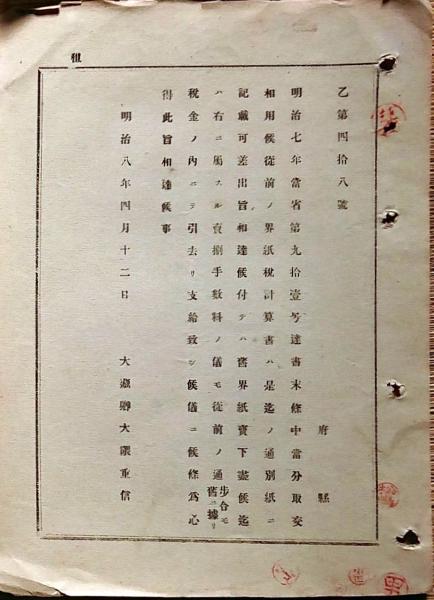 租
乙第四拾八號
府縣
明治七年當省第九拾壹号達書末條中當分取交
相用候從前ノ界紙稅計算書ハ是迄ノ通別紙ニ
記載可差出旨相達候付テハ舊界紙賣下盡候迄
ハ右ニ屬スル賣捌手數料ノ儀モ從前ノ通步合モ舊ニ據リ
稅金ノ內ニテ引去リ支給致シ候儀ニ候條爲心
得此旨相達候事
明治八年四月十二日 大藏卿大隈重信